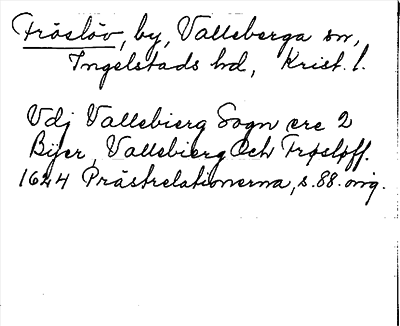 Fröslöv, by, Valleberga sn,
Ingelstads hd, Krist. l.
Vdj Vallebierg Sogn ere 2
Bijer, Vallebierg och Frøsløff.
1624 Prästrelationerna, s. 88. orig.